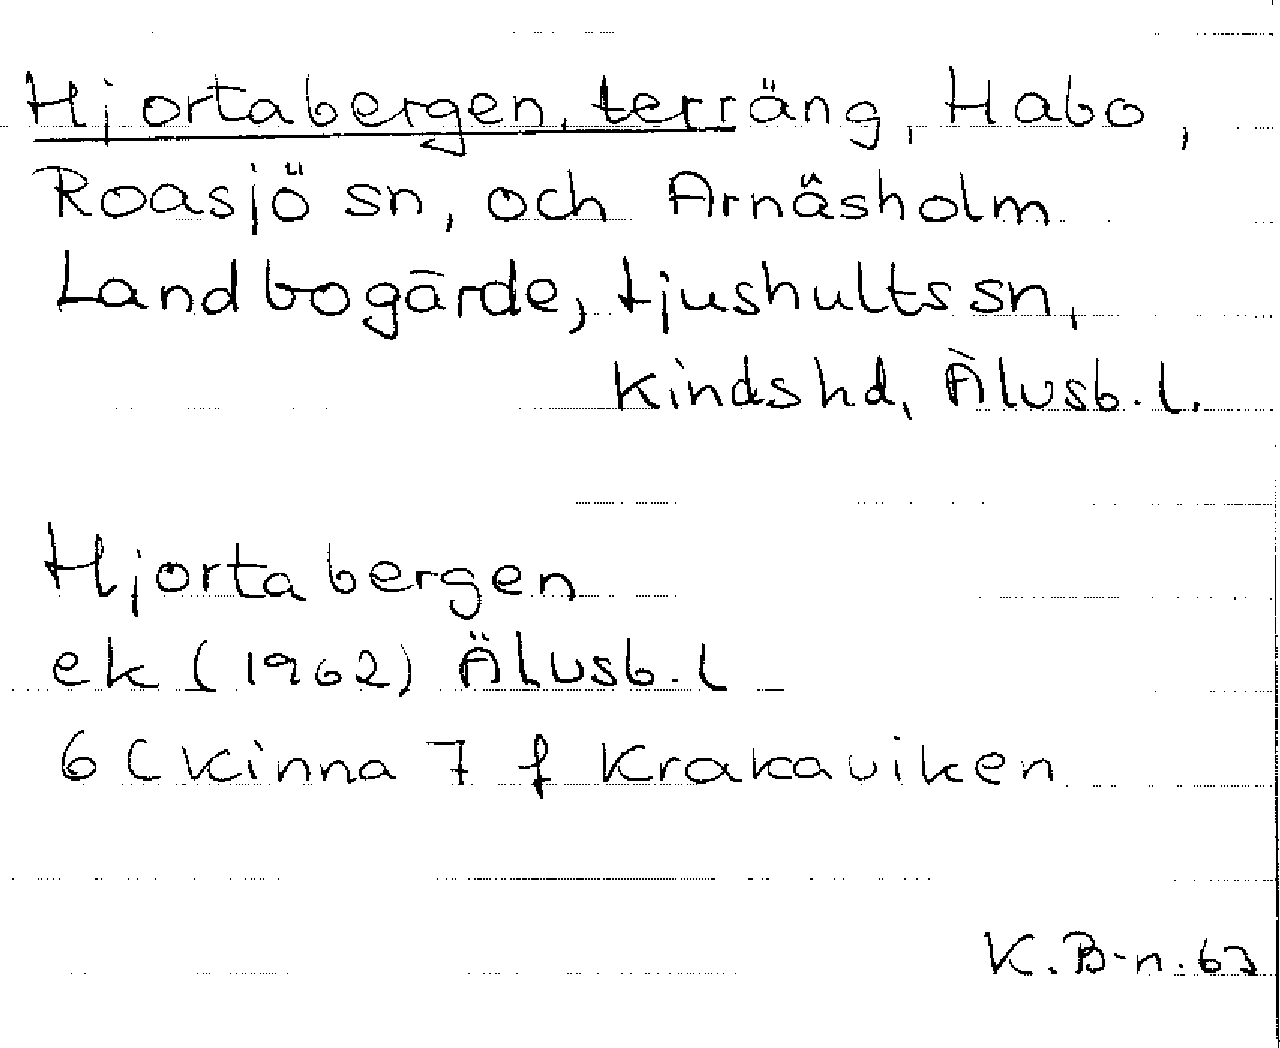 Hjortabergen, terräng, Habo,
Roasjö sn, och Arnåsholm
Landbogärde, Ljushults sn,
Kinds hd, Älvsb. l.
Hjortabergen
ek (1962) Älvsb. l
6 C Kinna 7 f Krakaviken
K. B-n. 63